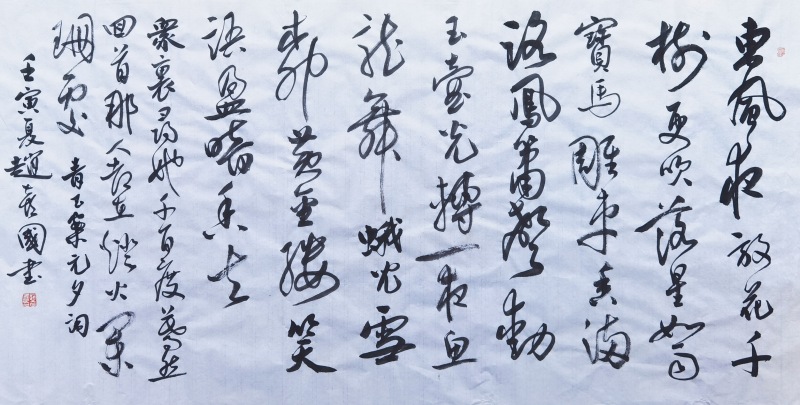 東風夜放花千
樹更吹落星如雨
寶馬雕車香满
路鳳簫聲動
玉壺光轉一夜魚
龍舞蛾兒雪
柳黄金縷笑
語盈暗香去
衆裏尋她千百度驀然
回首那人却在燈火闌
珊處 青玉案元夕詞
壬寅夏趙喜國書